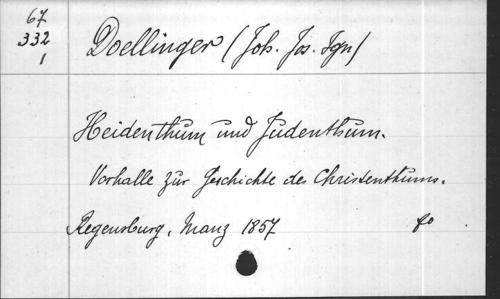 67
332
1
Doellinger (Joh. Jos. Ign)
Heidenthum und Judenthum.
Vorhalle zur Geschichte des Christenthums.
Regensburg, Manz 1857